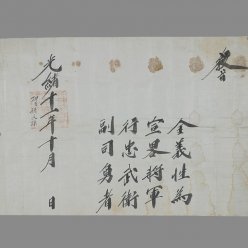 教旨
全義性為
宣畧將軍
行忠武衛
副司勇者
光緒十一年十月　日